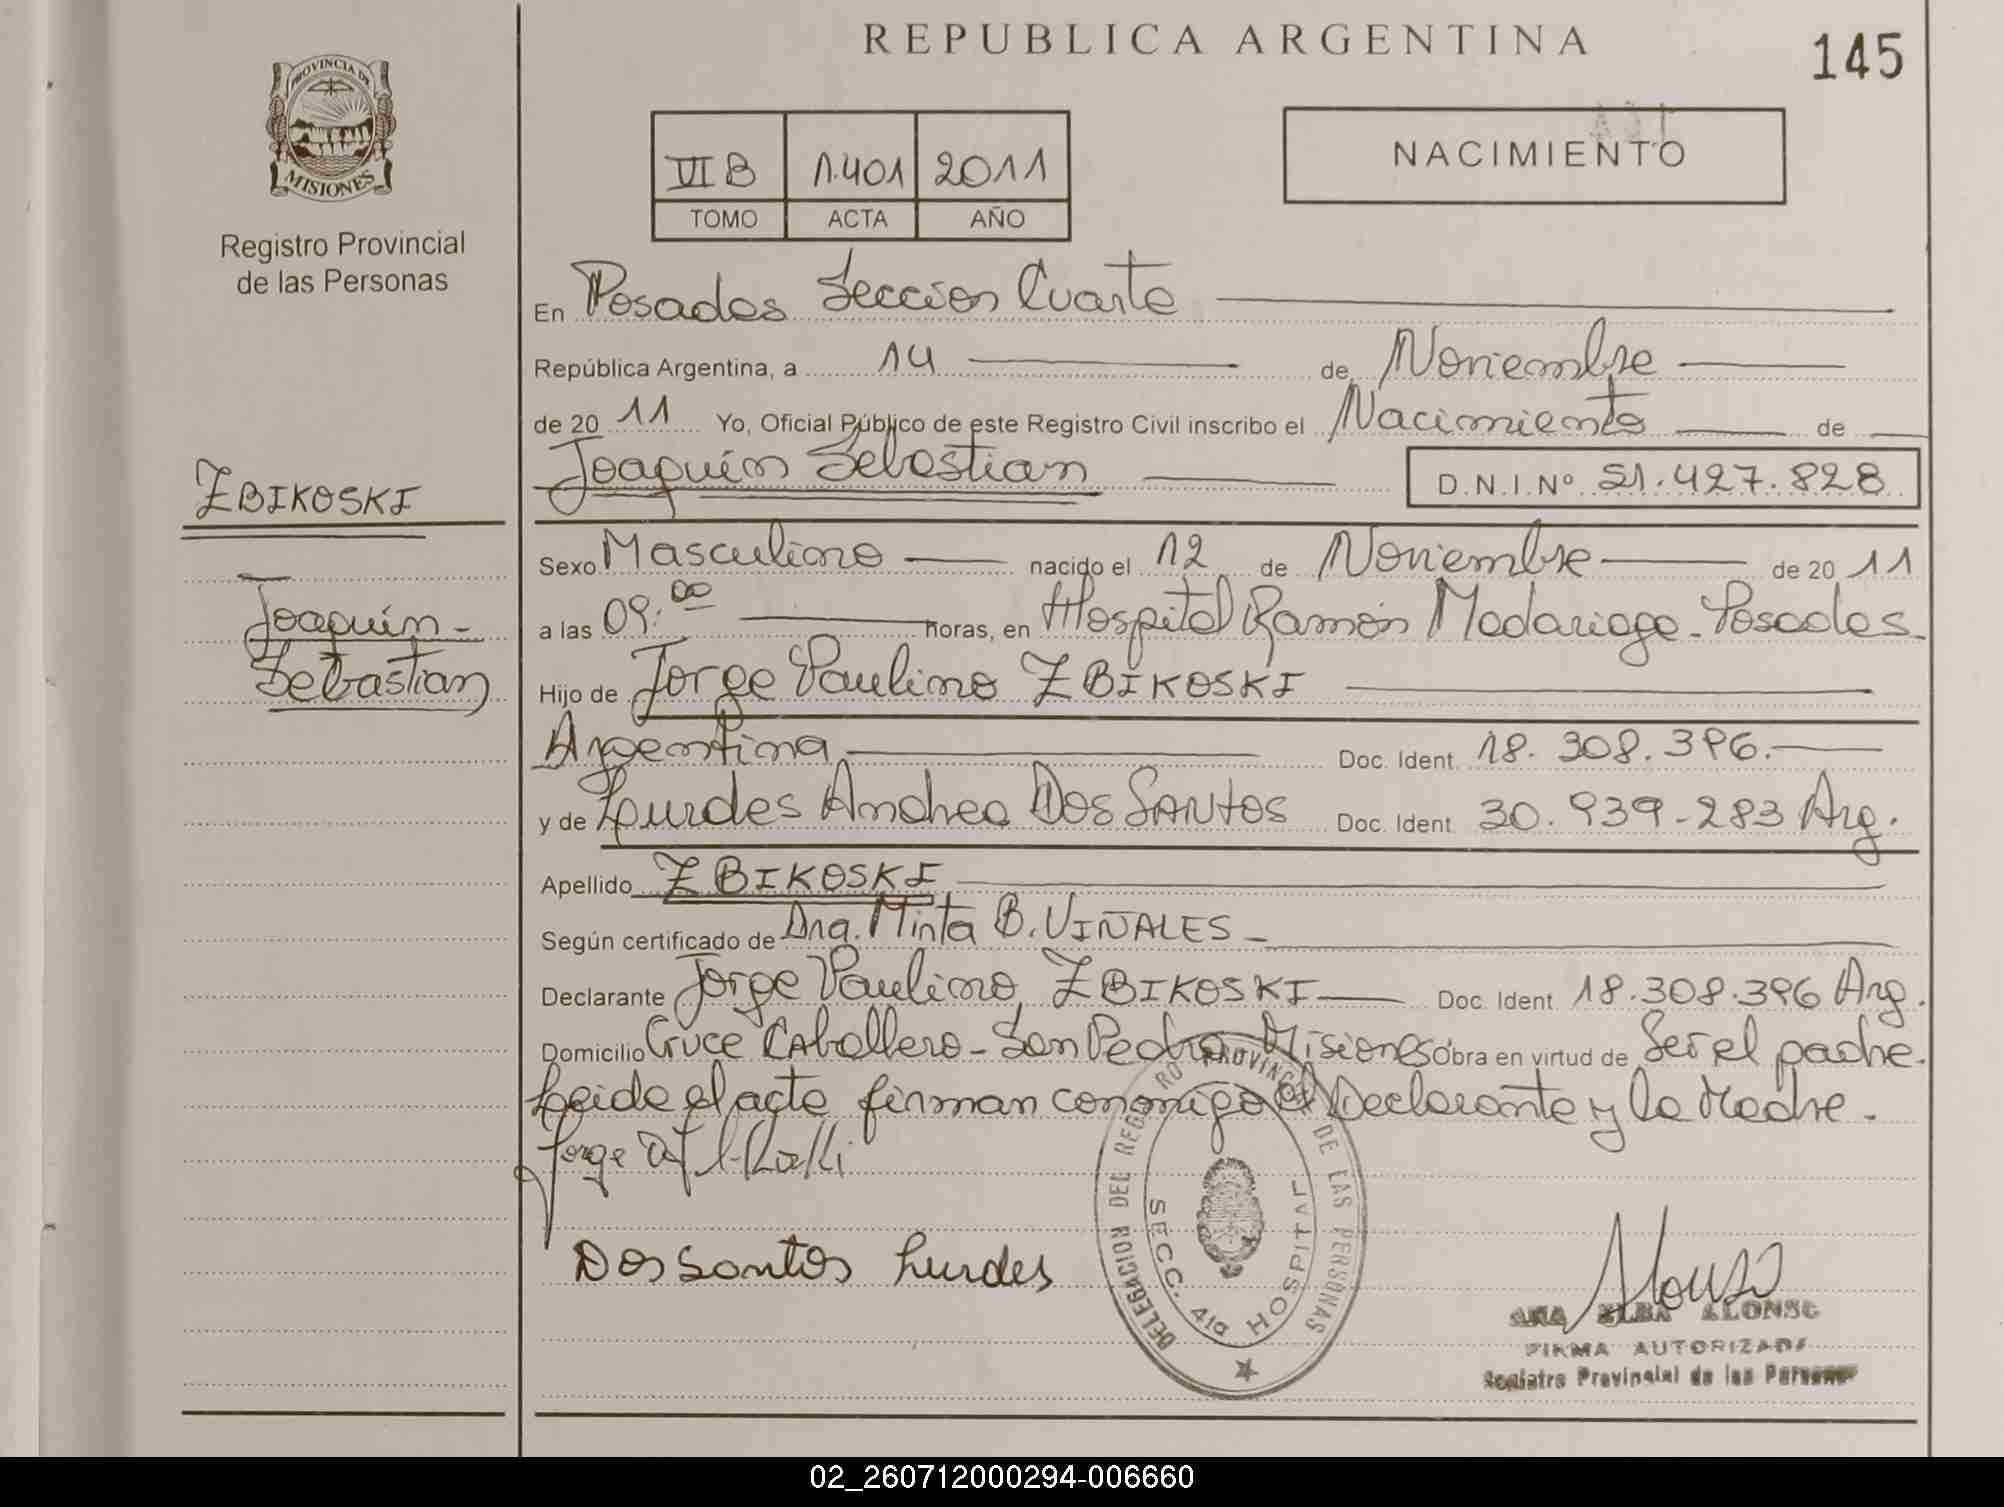 REPUBLICA ARGENTINA
145
PROVINCIA DE
MISIONES
Registro Provincial
de las Personas
VI B 1.401 2011
TOMO ACTA AÑO
NACIMIENTO
En Posadas Sección Cuarta
República Argentina, a 14 de Noviembre
de 2011 Yo, Oficial Público de este Registro Civil inscribo el Nacimiento de
Joaquín Sebastian D.N.I.Nº 51.427.828
ZBIKOSKI
Joaquín-
Sebastian
Sexo Masculino nacido el 12 de Noviembre de 2011
a las 09:00 horas, en Hospital Ramón Madariaga-Posadas-
Hijo de Jorge Paulino ZBIKOSKI
Argentina Doc. Ident. 18.308.396.
y de Lurdes Andrea DOS SANTOS Doc. Ident. 30.939-283 Arg.
Apellido ZBIKOSKI
Según certificado de Dra. Mirta B. VIÑALES-
Declarante Jorge Paulino ZBIKOSKI Doc. Ident. 18.308.396 Arg.
Domicilio Cruce Caballero-San Pedro Misiones obra en virtud de Ser el padre.
Leida el acta firman conmigo el Declarante y la Madre.
Jorge
Dos Santos Lurdes
DELEGACION DEL REGISTRO PROVINCIAL DE LAS PERSONAS
SECC. 4ta HOSPITAL
Alonso
ANA ELBA ALONSO
FIRMA AUTORIZADA
Registro Provincial de las Personas
02_260712000294-006660